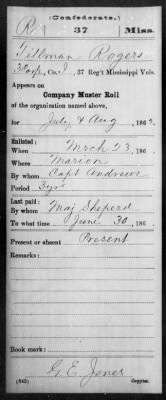 (Confederate.)
R 37 Miss.
Tillman Rogers
Co. , 37 Reg't Mississippi Vols.
Appears on
Company Muster Roll
of the organization named above,
for July & Aug , 1862.
Enlisted:
When Mrch 23, 186
Where Marion
By whom Capt Andrews
Period 3 yrs
Last paid:
By whom Maj Sheperd
To what time June 30 , 186
Present or absent Present
Remarks:
Book mark:
G. E. Jones
(642) Copyist.